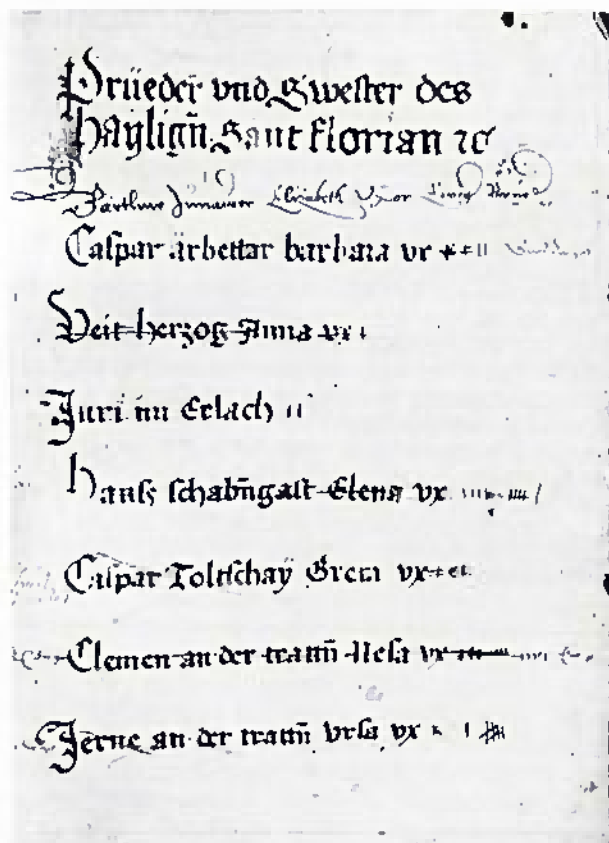 Brüeder vnd Swester des
hayligñ Sant florian ⁊c
Elizabeth Vxor
Caspar ärbettar barbara vx
Veit herzog Anna vx ı
Juri im Erlach ıı
hanß schabñgast Elena vx
Caspar Toltschaÿ Grera vx
Clemen an der tratñ Nesa vx
Jerne an der tratñ vrsa vx